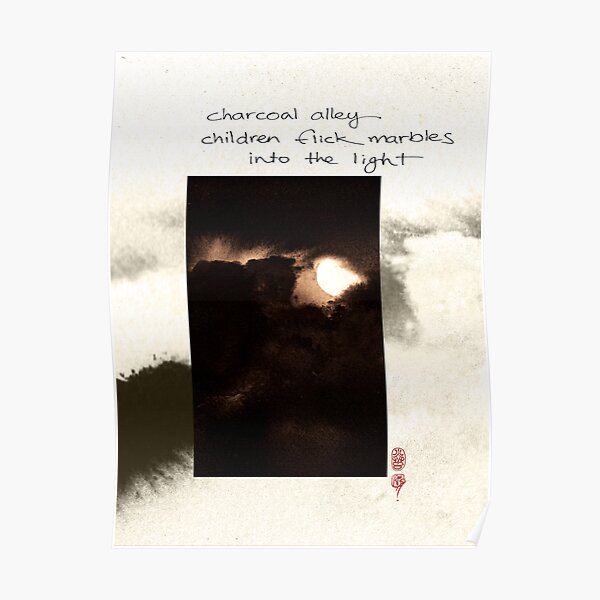 charcoal alley
children flick marbles
into the light